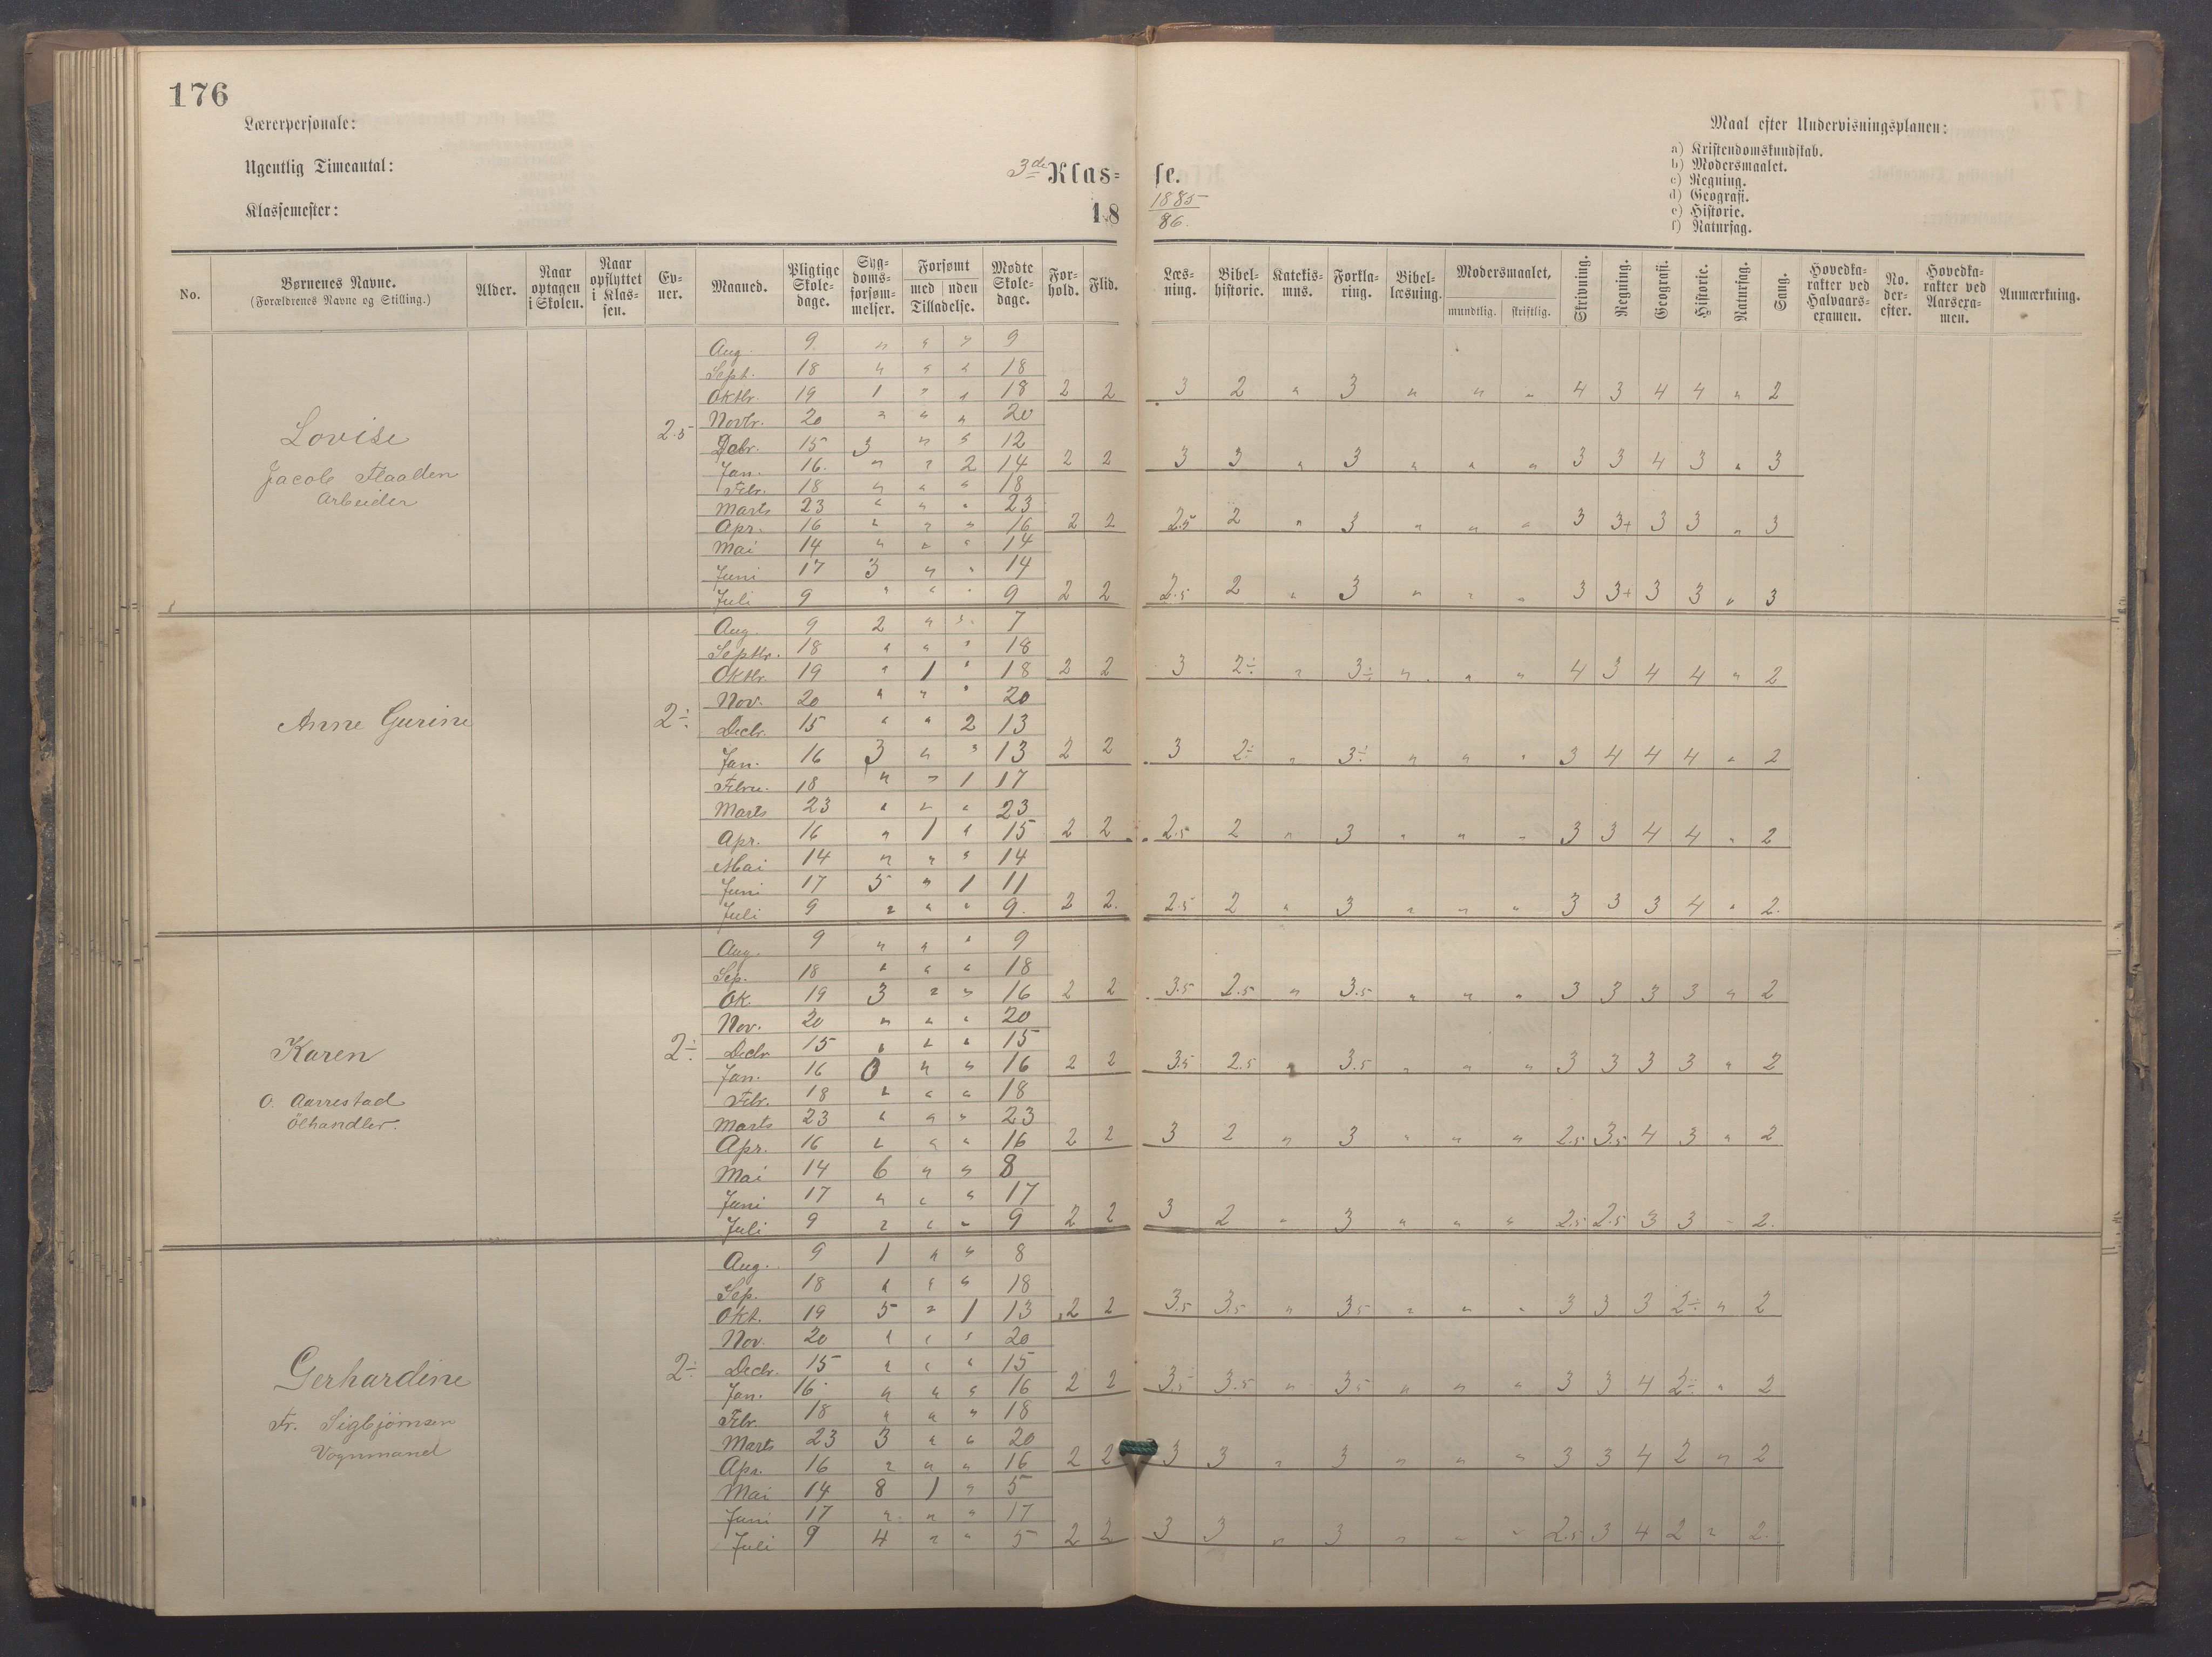 176
Lærerpersonale:
Ugentlig Timeantal:
Klassemester:
3de Klas= se.
18 1885
86.
Maal efter Undervisningsplanen:
a) Kristendomskundskab.
b) Modersmaalet.
c) Regning.
d) Geografi.
e) Historie.
f) Naturfag.
No. Børnenes Navne. (Forældrenes Navne og Stilling.) Alder. Naar optagen i Skolen. Naar opflyttet i Klas- sen. Ev- ner. Maaned. Pligtige Skole- dage. Syg- doms- forsøm- melser. Forsømt med uden Tilladelse. Mødte Skole- dage. For- hold. Flid. Læs- ning. Bibel- historie. Katekis- mus. Forkla- ring. Bibel- læsning. Modersmaalet, mundtlig. skriftlig. Skrivning. Regning. Geografi. Historie. Naturfag. Sang. Hovedka- rakter ved Halvaars- examen. No. der- efter. Hovedka- rakter ved Aarsexa- men. Anmærkning.
Lovise
Jacob Flaaden
Arbeider
2.5
Aug. 9. " " " 9
Sept. 18 " " " 18
Oktbr. 19 1 " " 18 2 2 3 2 " 3 " " " 4 3 4 4 " 2
Novbr. 20 " " " 20
Debr. 15 3 " " 12
Jan. 16. " " 2 14 2 2 3 3 " 3 " " " 3 3 4 3 " 3
Febr. 18 " " " 18
Marts 23 " " " 23
Apr. 16 " " " 16 2 2 2.5 2 " 3 " " " 3 3+ 3 3 " 3
Mai 14 " " " 14
Juni 17 3 " " 14
Juli 9 " " " 9 2 2 2.5 2 " 3 " " " 3 3+ 3 3 " 3
Anne Gurine
2÷
Aug. 9 2 " " 7
Septbr. 18 " " " 18
Oktbr. 19 " 1 " 18 2 2 3 2÷ " 3÷ " " " 4 3 4 4 " 2
Nov. 20 " " " 20
Decbr. 15 " " 2 13
Jan. 16 3 " " 13 2 2 3 2÷ " 3÷ " " " 3 4 4 4 " 2
Febru. 18 " " 1 17
Marts 23 " " " 23
Apr. 16 " 1 " 15 2 2 2.5 2 " 3 " " " 3 3 4 4 " 2
Mai 14 " " " 14
Juni 17 5 " 1 11
Juli 9 " " " 9. 2 2. 2.5 2 " 3 " " " 3 3 3 4 " 2.
Karen
O. Aarrestad
Ölhandler.
2÷
Aug. 9 " " " 9
Sep. 18 " " " 18
Ok. 19 3 " " 16 2 2 3.5 2.5 " 3.5 " " " 3 3 3 3 " 2
Nov. 20 " " " 20
Decbr 15 " " " 15
Jan. 16 0 " " 16 2 2 3.5 2.5 " 3.5 " " " 3 3 3 3 " 2
Febr. 18 " " " 18
Marts 23 " " " 23
Apr. 16 " " " 16 2 2 3 2 " 3 " " " 2.5 3.5 4 3 " 2
Mai 14 6 " " 8
Juni 17 " " " 17
Juli 9 " " " 9 2 2 3 2 " 3 " " " 2.5 2.5 3 3 " 2.
Gerhardine
Fr. Sigbjörnsen
Vognmand
2÷
Aug. 9 1 " " 8
Sep. 18 " " " 18
Okt. 19 5 " 1 13 2 2 3.5 3.5 " 3.5 " " " 3 3 3 2÷ " 2
Nov. 20 " " " 20
Decbr. 15 " " " 15
Jan. 16 " " " 16 2 2 3.5 3.5 " 3.5 " " " 3 3 4 2÷ " 2
Febr. 18 " " " 18
Marts 23 3 " " 20
Apr. 16 " " " 16 2 2 3 3 " 3 " " " 3 3 4 2 " 2
Mai 14 8 1 " 5
Juni 17 " " " 17
Juli 9 4 " " 5 2 2 3 3 " 3 " " " 2.5 3 4 2 " 2.